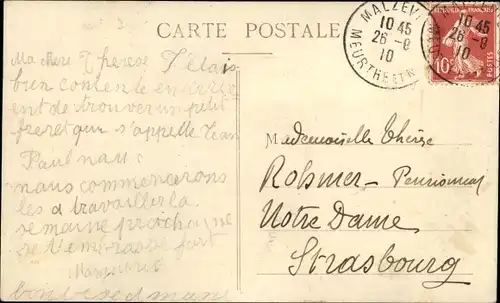 CARTE POSTALE
MALZÉVI
10 45
26 - 8
10
MEURTHE ET M
10 45
26 - 8
10
10c
POSTES
Ma chère Thérèse J'étais
bien contente en arriv
ent de trouver un petit
freret qui s'appelle Jean
Paul nau:
naus commencerons
les a travailler la
semaine prochaine
je t'embrasse fort
Marguerite
Mademoiselle Thérèse
Rohmer - Pensionnat
Notre Dame
Strasbourg